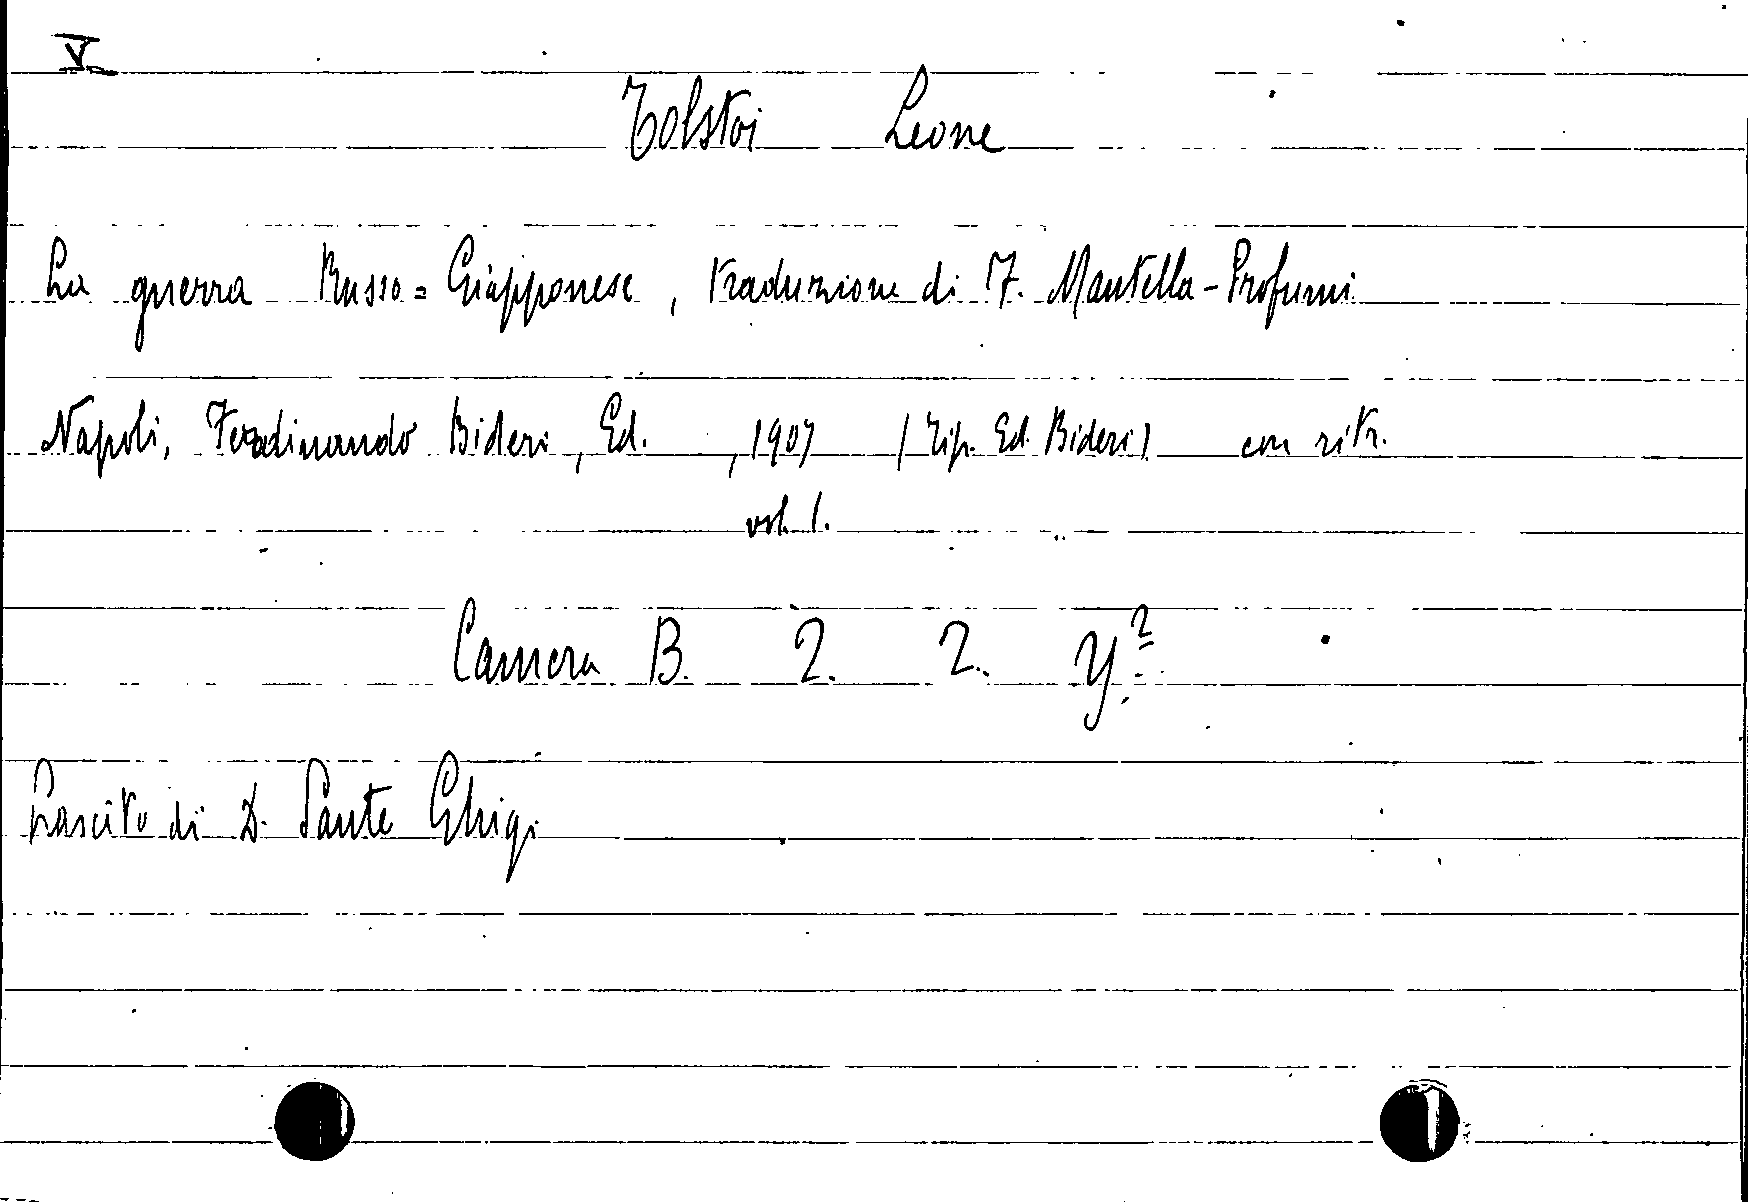 V
Tolstoi Leone
La guerra Russo=Giapponese, traduzione di F. Mantella-Profumi
Napoli, Ferdinando Bideri, Ed. , 1907 (Tip. Ed. Bideri) con ritr.
vol. 1.
Camera B. 2. 2. y²
Lascito di D. Sante Ghigi